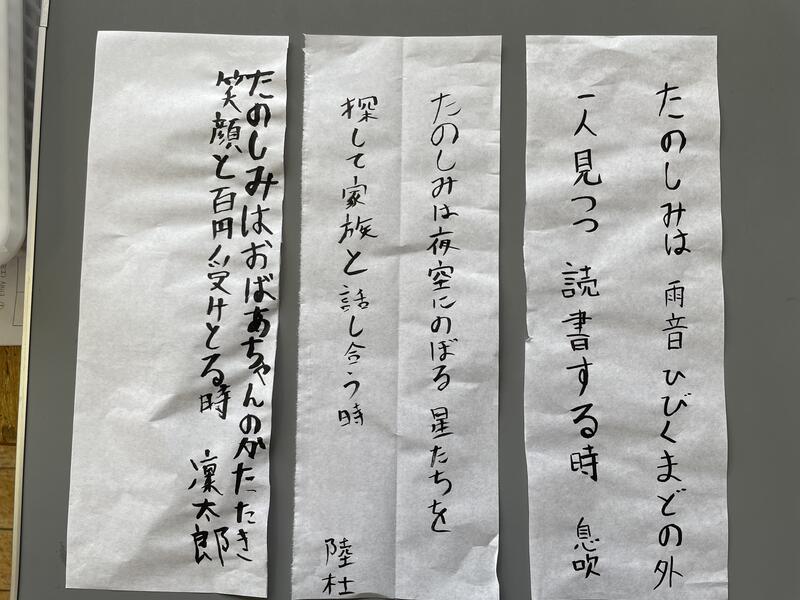 たのしみは 雨音 ひびくまどの外
一人見つつ 読書する時 息吹
たのしみは夜空にのぼる 星たちを
探して家族と話し合う時
陸杜
たのしみはおばあちゃんのかたたたき
笑顔と百円受けとる時 凜太郎